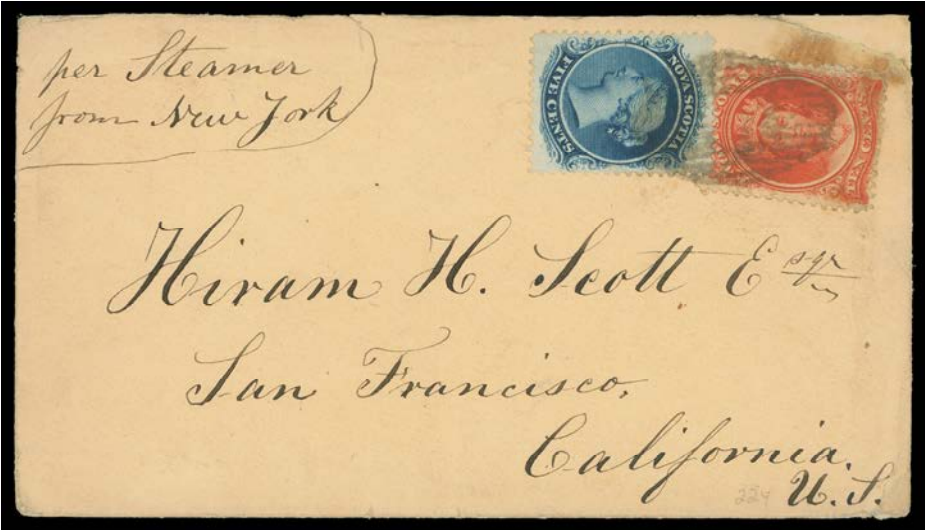 per Steamer
from New York
NOVA SCOTIA
FIVE CENTS
Hiram H. Scott Esqr
San Francisco,
California.
U.S.
224